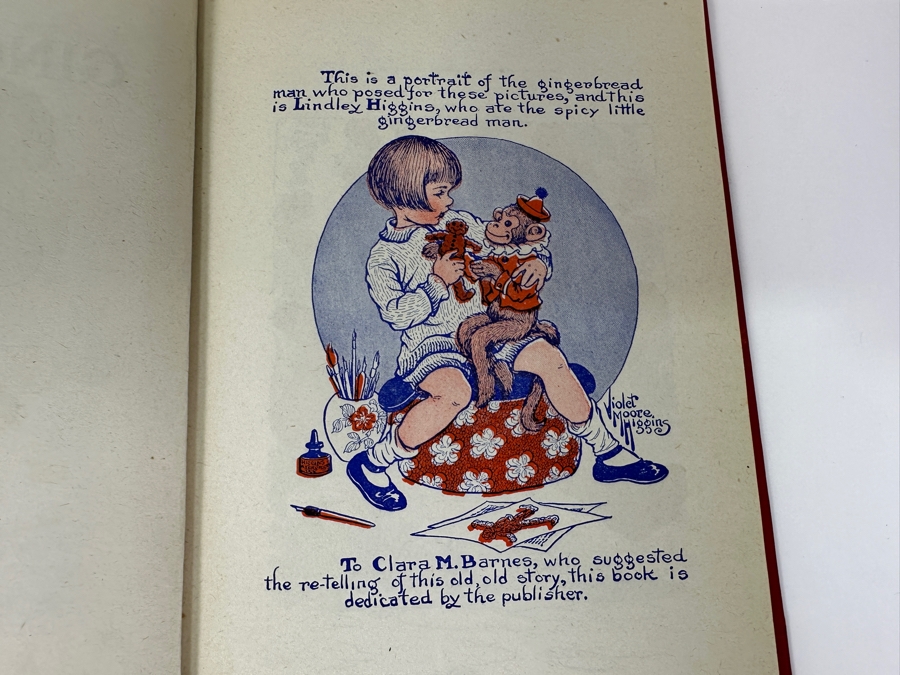 This is a portrait of the gingerbread
man who posed for these pictures, and this
is Lindley Higgins, who ate the spicy little
gingerbread man.
Violet
Moore
Higgins
To Clara M. Barnes, who suggested
the re-telling of this old, old story, this book is
dedicated by the publisher.